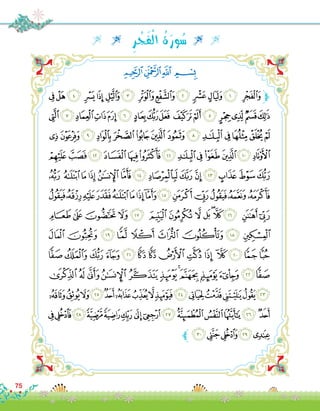 سُورَةُ الْفَجْرِ
بِسْمِ اللَّهِ الرَّحْمَٰنِ الرَّحِيمِ
وَالْفَجْرِ ١ وَلَيَالٍ عَشْرٍ ٢ وَالشَّفْعِ وَالْوَتْرِ ٣ وَاللَّيْلِ إِذَا يَسْرِ ٤ هَلْ فِي
ذَٰلِكَ قَسَمٌ لِّذِي حِجْرٍ ٥ أَلَمْ تَرَ كَيْفَ فَعَلَ رَبُّكَ بِعَادٍ ٦ إِرَمَ ذَاتِ الْعِمَادِ ٧ الَّتِي
لَمْ يُخْلَقْ مِثْلُهَا فِي الْبِلَٰدِ ٨ وَثَمُودَ الَّذِينَ جَابُوا الصَّخْرَ بِالْوَادِ ٩ وَفِرْعَوْنَ ذِي
الْأَوْتَادِ ١٠ الَّذِينَ طَغَوْا فِي الْبِلَٰدِ ١١ فَأَكْثَرُوا فِيهَا الْفَسَادَ ١٢ فَصَبَّ عَلَيْهِمْ
رَبُّكَ سَوْطَ عَذَابٍ ١٣ إِنَّ رَبَّكَ لَبِالْمِرْصَادِ ١٤ فَأَمَّا الْإِنسَٰنُ إِذَا مَا ابْتَلَىٰهُ رَبُّهُ
فَأَكْرَمَهُ وَنَعَّمَهُ فَيَقُولُ رَبِّي أَكْرَمَنِ ١٥ وَأَمَّا إِذَا مَا ابْتَلَىٰهُ فَقَدَرَ عَلَيْهِ رِزْقَهُ فَيَقُولُ
رَبِّي أَهَٰنَنِ ١٦ كَلَّا بَل لَّا تُكْرِمُونَ الْيَتِيمَ ١٧ وَلَا تَحَٰضُّونَ عَلَىٰ طَعَامِ
الْمِسْكِينِ ١٨ وَتَأْكُلُونَ التُّرَاثَ أَكْلًا لَّمًّا ١٩ وَتُحِبُّونَ الْمَالَ
حُبًّا جَمًّا ٢٠ كَلَّا إِذَا دُكَّتِ الْأَرْضُ دَكًّا دَكًّا ٢١ وَجَاءَ رَبُّكَ وَالْمَلَكُ صَفًّا
صَفًّا ٢٢ وَجِا۟يءَ يَوْمَئِذٍ بِجَهَنَّمَ يَوْمَئِذٍ يَتَذَكَّرُ الْإِنسَٰنُ وَأَنَّىٰ لَهُ الذِّكْرَىٰ
٢٣ يَقُولُ يَٰلَيْتَنِي قَدَّمْتُ لِحَيَاتِي ٢٤ فَيَوْمَئِذٍ لَّا يُعَذِّبُ عَذَابَهُ أَحَدٌ ٢٥ وَلَا يُوثِقُ وَثَاقَهُ
أَحَدٌ ٢٦ يَٰأَيَّتُهَا النَّفْسُ الْمُطْمَئِنَّةُ ٢٧ ارْجِعِي إِلَىٰ رَبِّكِ رَاضِيَةً مَّرْضِيَّةً ٢٨ فَادْخُلِي فِي
عِبَٰدِي ٢٩ وَادْخُلِي جَنَّتِي ٣٠
75